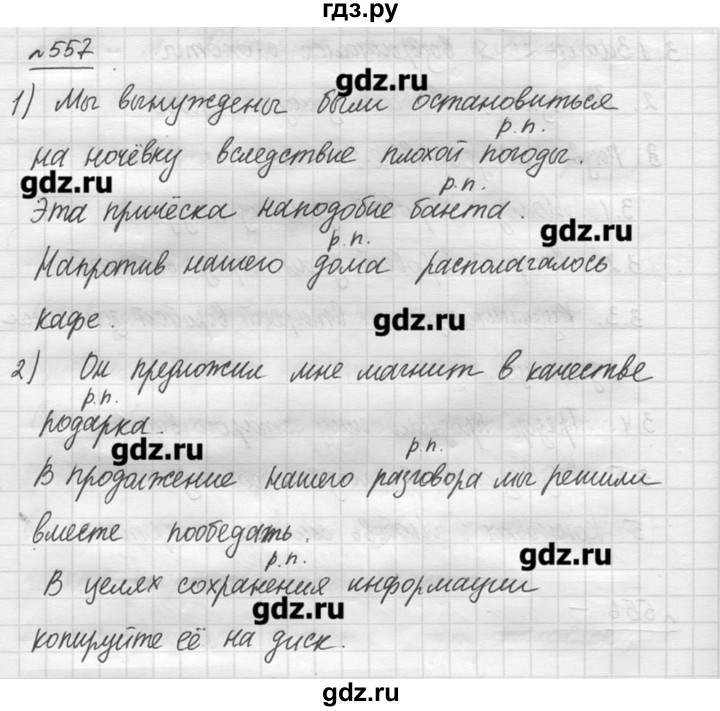 гдз.ру
№557
gdz.ru
1) Мы вынуждены были остановиться
р.п.
на ночёвку вследствие плохой погоды.
gdz.ru
р.п.
Эта причёска наподобие банта.
gdz.ru
р.п.
Напротив нашего дома располагалось
кафе.
gdz.ru
2) Он предложил мне магнит в качестве
р.п.
подарка.
gdz.ru
р.п.
В продолжение нашего разговора мы решили
вместе пообедать.
gdz.ru
р.п.
В целях сохранения информации
gdz.ru
копируйте её на диск.
gdz.ru